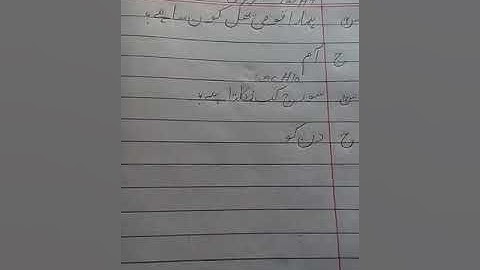 س ہمارا قومی پھل کون سا ہے؟
ج آم
س سورج کب نکلتا ہے؟
ج دن کو